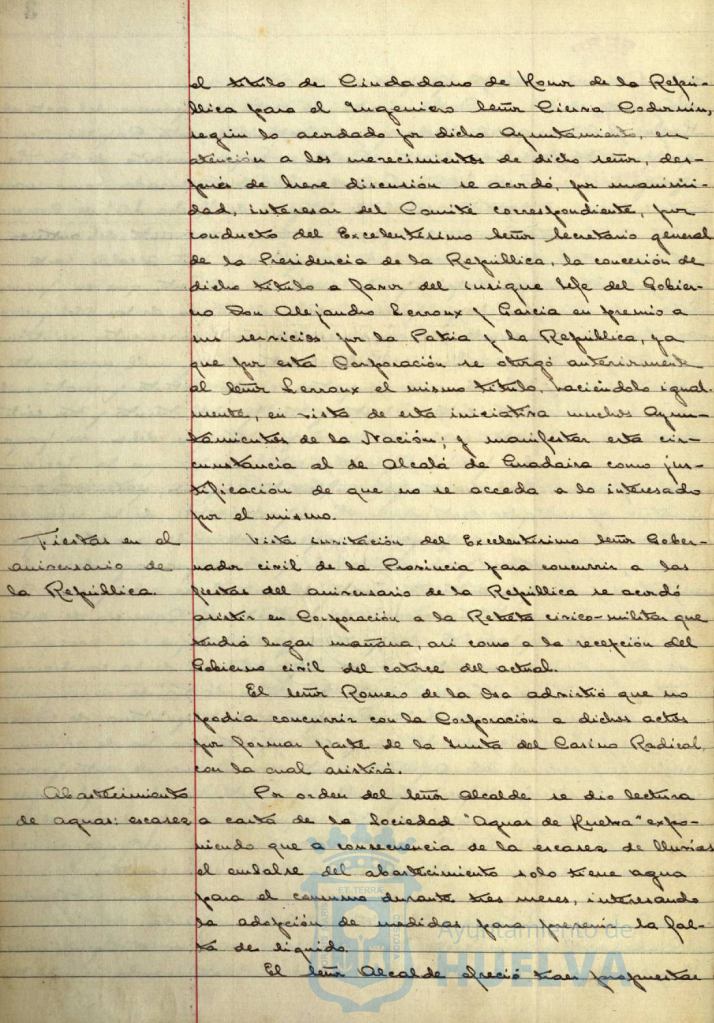 el título de Ciudadano de Honor de la Repú-
blica para el Ingeniero Señor Cierva Codorníu,
según lo acordado por dicho Ayuntamiento, en
atención a los merecimientos de dicho señor, des-
pués de breve discusión se acordó, por unanimi-
dad, interesar del Comité correspondiente, por
conducto del Excelentísimo Señor Secretario general
de la Presidencia de la República, la concesión de
dicho título a favor del insigne Jefe del Gobier-
no Don Alejandro Lerroux y García en premio a
sus servicios por la Patria y la República, ya
que por esta Corporación se otorgó anteriormente
al Señor Lerroux el mismo título, haciéndolo igual-
mente, en vista de esta iniciativa muchos Ayun-
tamientos de la Nación; y manifestar esta cir-
cunstancia al de Alcalá de Guadaira como jus-
tificación de que no se acceda a lo interesado
por el mismo.
Fiestas en el
aniversario de
la República.
Vista invitación del Excelentísimo Señor Gober-
nador civil de la Provincia para concurrir a las
fiestas del aniversario de la República se acordó
asistir en Corporación a la Retreta cívico-militar que
tendrá lugar mañana, así como a la recepción del
Gobierno civil del catorce del actual.
El señor Romero de la Osa advirtió que no
podía concurrir con la Corporación a dichos actos
por formar parte de la Junta del Casino Radical,
con la cual asistirá.
Abastecimiento
de aguas: escasez
Por orden del Señor Alcalde se dio lectura
a carta de la Sociedad "Aguas de Huelva" expo-
niendo que a consecuencia de la escasez de lluvias
el embalse del abastecimiento solo tiene agua
para el consumo durante tres meses, interesando
la adopción de medidas para prevenir la fal-
ta de líquido.
El Señor Alcalde ofreció traer propuestas
ET TERRÆ
Ayuntamiento de
HUELVA